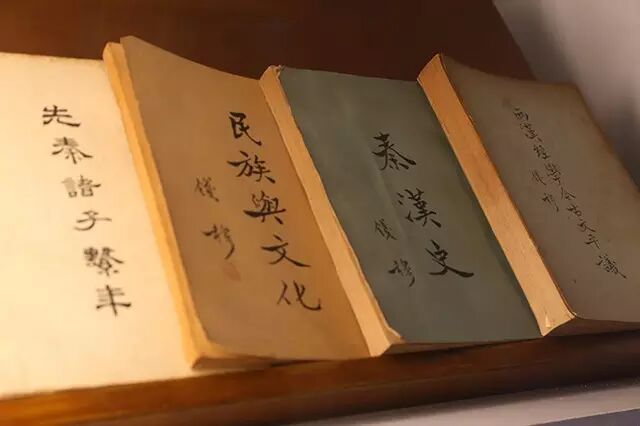 先秦諸子繫年
民族與文化
錢穆
秦漢史
錢穆
兩漢經學今古文平議
錢穆